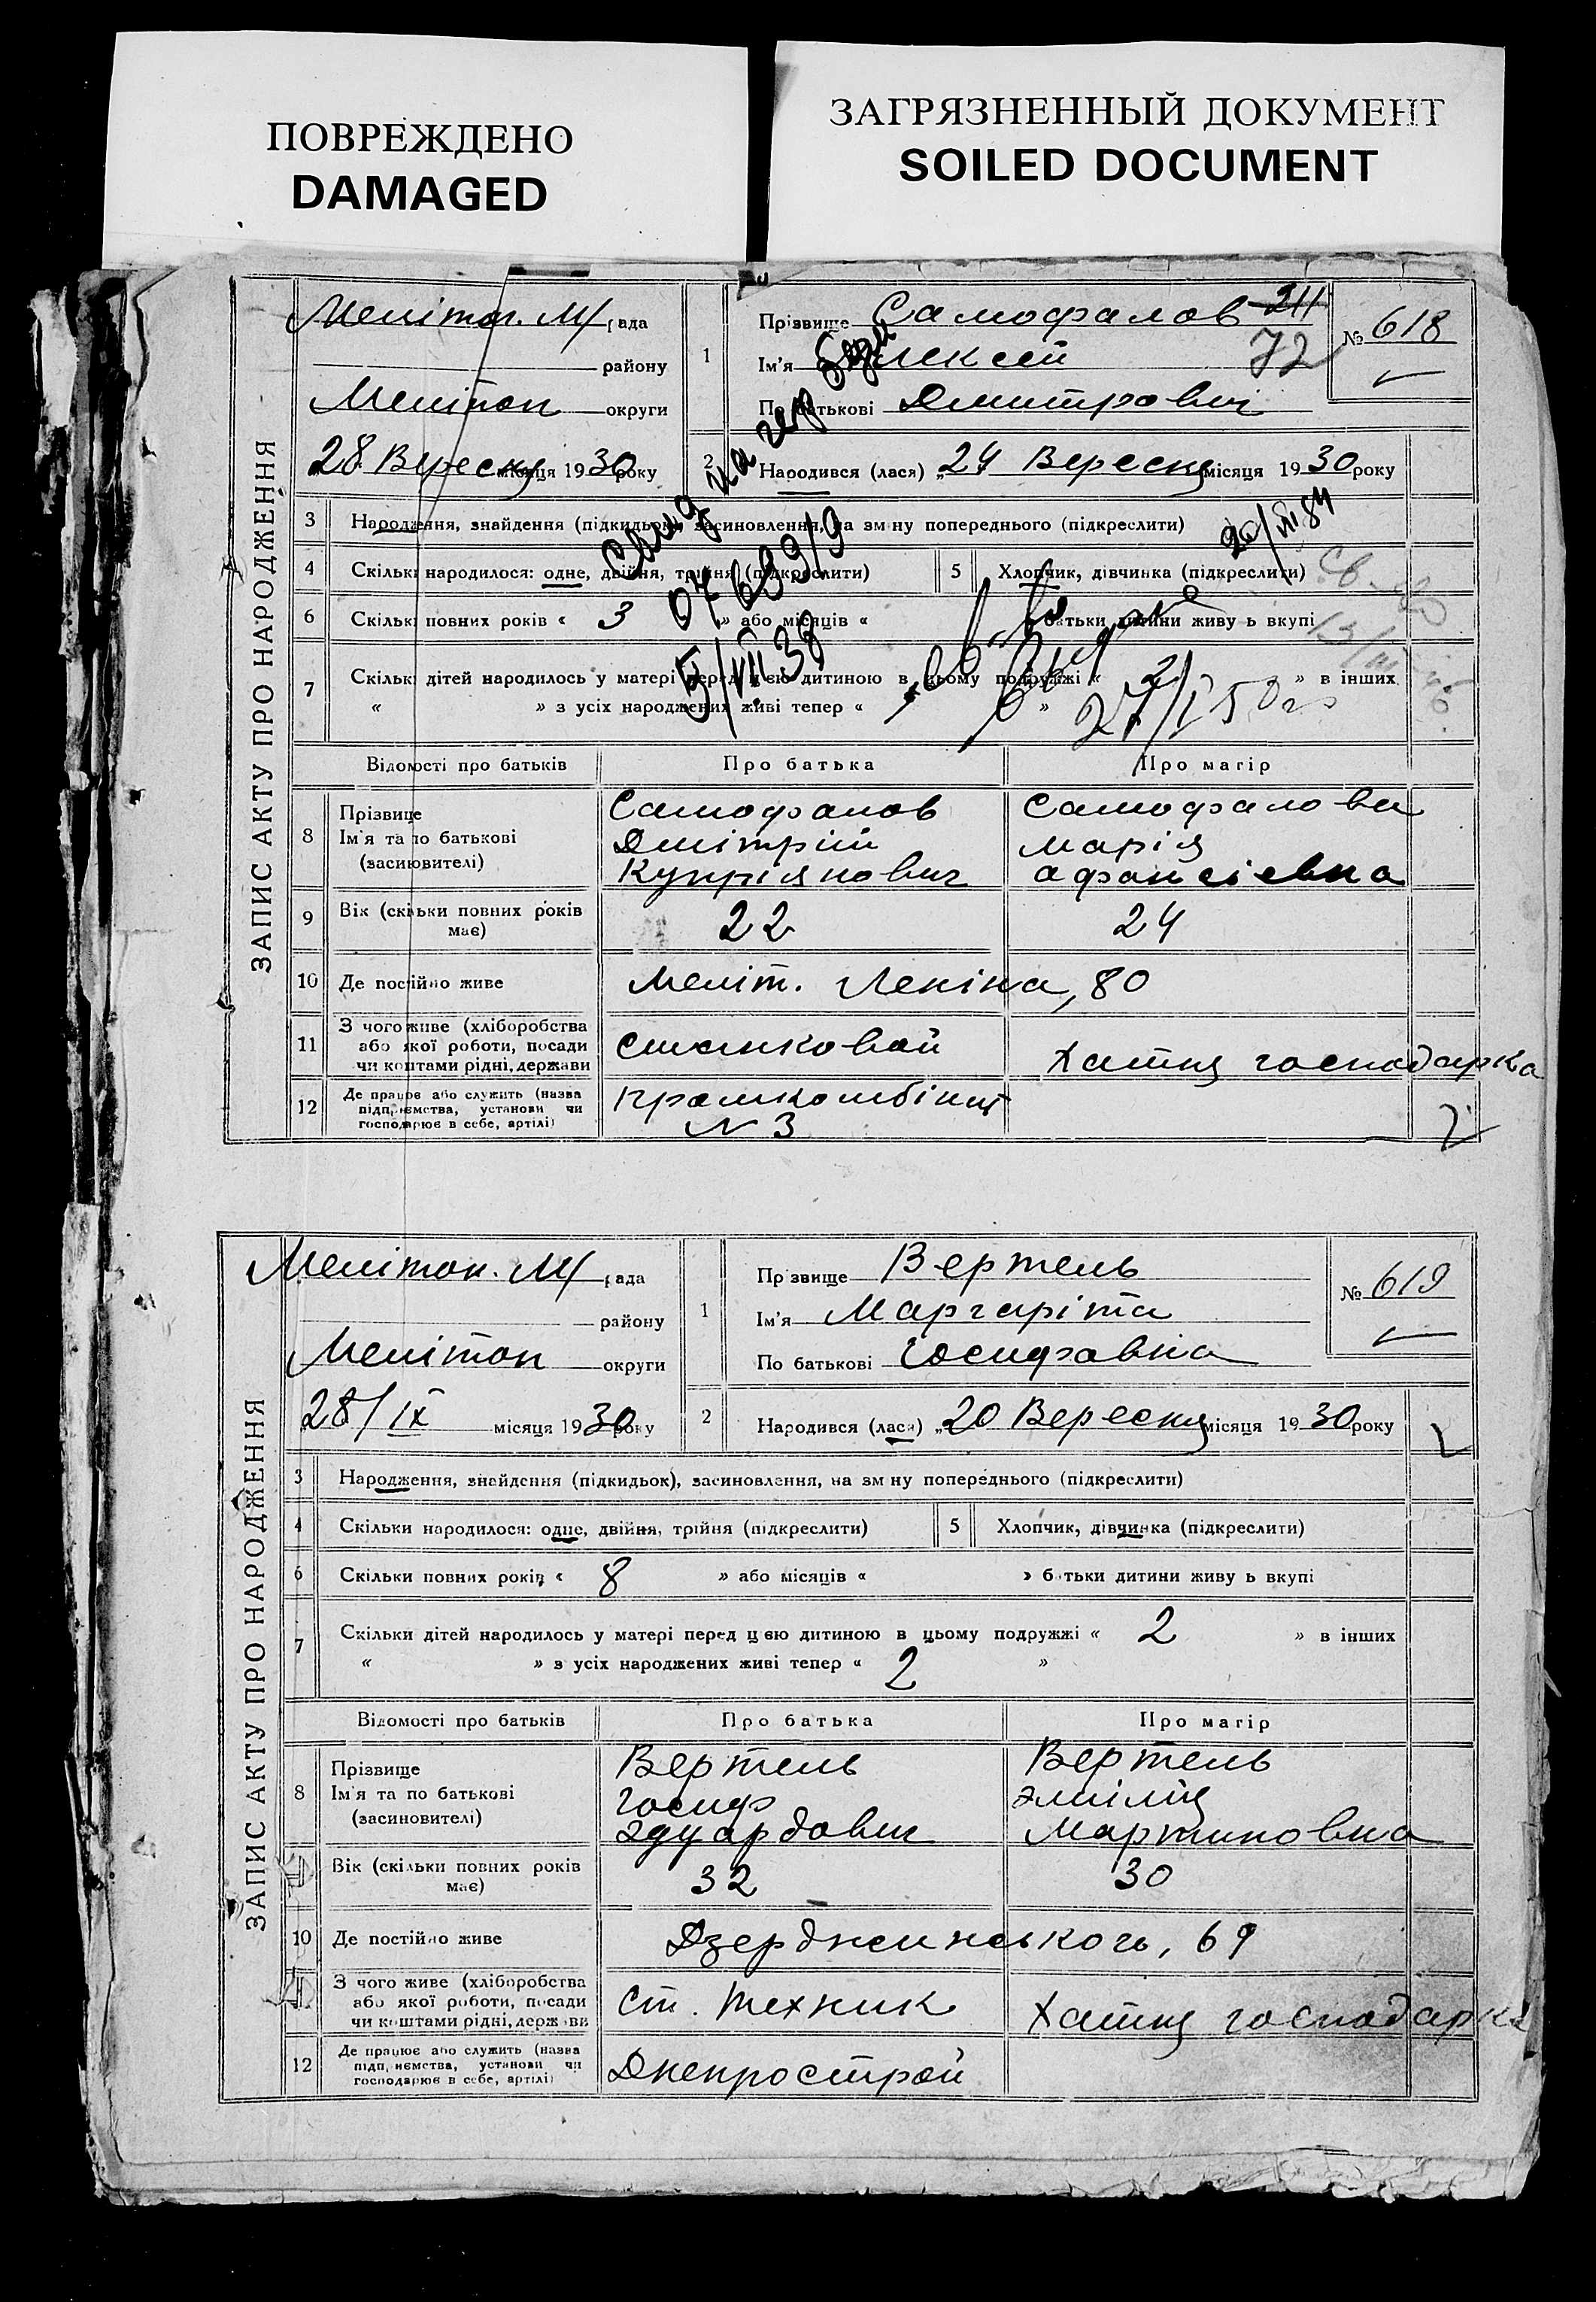 ПОВРЕЖДЕНО
DAMAGED
ЗАГРЯЗНЕННЫЙ ДОКУМЕНТ
SOILED DOCUMENT
ЗАПИС АКТУ ПРО НАРОДЖЕННЯ
Мелітоп. М/рада
району
Мелітоп округи
28 Вересня місяця 1930 року
1
Прізвище Самофалов 211
Ім'я Олексей 72
По батькові Дмитрович
№ 618
2 Народився (лася) „24 Вересня місяця 1930 року
3 Народження, знайдення (підкидьок), засиновлення, на зміну попереднього (підкреслити)
4 Скільки народилося: одне, двійня, трійня (підкреслити) 5 Хлопчик, дівчинка (підкреслити)
6 Скільки повних років « 3 » або місяців « » батьки дитини живуть вкупі
7 Скільки дітей народилось у матері перед цією дитиною в цьому подружжі « 2 » в інших
« » з усіх народжених живі тепер « »
07689/9
5/VII 39
27/I 50
Відомості про батьків Про батька Про матір
8 Прізвище
Ім'я та по батькові
(засиновителі)
Самофалов
Дмітрій
Купріянович
Самофалова
Марія
Афансіевна
9 Вік (скільки повних років має) 22 24
10 Де постійно живе Меліт. Леніна, 80
11 З чого живе (хліборобства
або якої роботи, посади
чи коштами рідні, держави
станковой
Хатня господарка
12 Де працює або служить (назва
підприємства, установи чи
господарює в себе, артілі)
Промкомбінат
N 3
ЗАПИС АКТУ ПРО НАРОДЖЕННЯ
Мелітоп. М/рада
району
Мелітоп округи
28/IX місяця 1930 року
1
Прізвище Вертель
Ім'я Маргаріта
По батькові Іосифовна
№ 619
2 Народився (лася) „20 Вересня місяця 1930 року
3 Народження, знайдення (підкидьок), засиновлення, на зміну попереднього (підкреслити)
4 Скільки народилося: одне, двійня, трійня (підкреслити) 5 Хлопчик, дівчинка (підкреслити)
6 Скільки повних років « 8 » або місяців « » батьки дитини живуть вкупі
7 Скільки дітей народилось у матері перед цією дитиною в цьому подружжі « 2 » в інших
« » з усіх народжених живі тепер « 2 »
Відомості про батьків Про батька Про матір
8 Прізвище
Ім'я та по батькові
(засиновителі)
Вертель
Іосиф
Эдуардович
Вертель
Эмілія
Мартиновна
Вік (скільки повних років має) 32 30
10 Де постійно живе Дзержинського, 69
З чого живе (хліборобства
або якої роботи, посади
чи коштами рідні, держави
Ст. техник
Хатня господарка
12 Де працює або служить (назва
підприємства, установи чи
господарює в себе, артілі)
Днепрострой